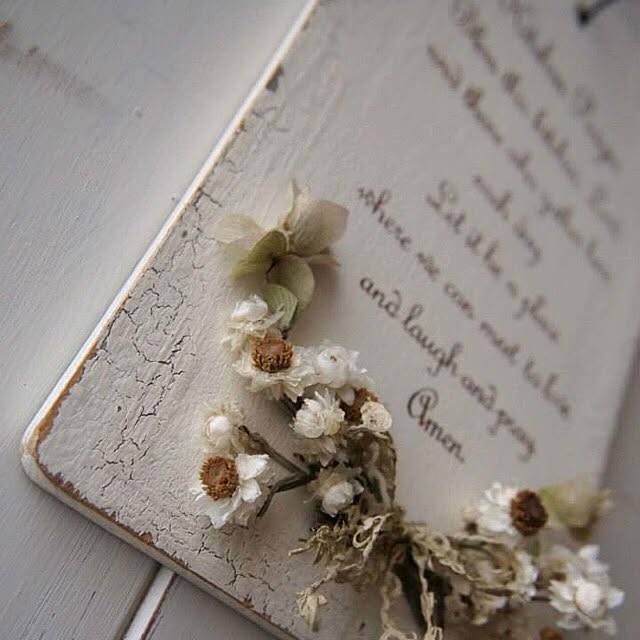 Kitchen Prayer
Bless this kitchen, Lord,
and those who gather here
each day
Let it be a place
where we can meet to
and laugh and pray
Amen.